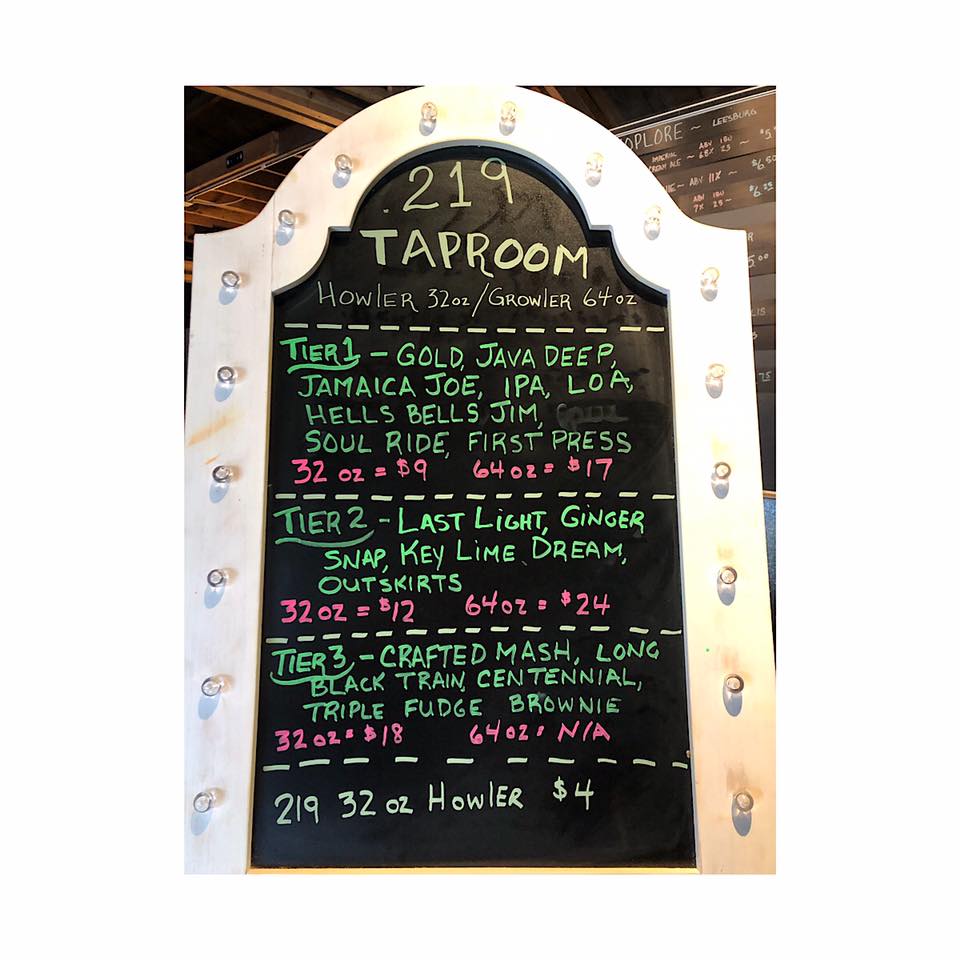 .219
TAPROOM
HOWLER 32oz/GROWLER 64oz
TIER 1 - GOLD, JAVA DEEP,
JAMAICA JOE, IPA, LOA,
HELLS BELLS JIM,
SOUL RIDE, FIRST PRESS
32 oz = $9 64oz = $17
TIER 2 - LAST LIGHT, GINGER
SNAP, KEY LIME DREAM,
OUTSKIRTS
32 oz = $12 64oz = $24
TIER 3, - CRAFTED MASH, LONG
BLACK TRAIN, CENTENNIAL,
TRIPLE FUDGE BROWNIE
32oz = $18 64oz = N/A
219 32 oz HOWLER $4
OPLORE ~ LEESBURG
IMPERIAL ABV IBU
CREAM ALE ~ 6.8% 25 ~
~ ABV 11% ~ $6.50
ABV IBU
7% 25 ~ $6.25
5.00